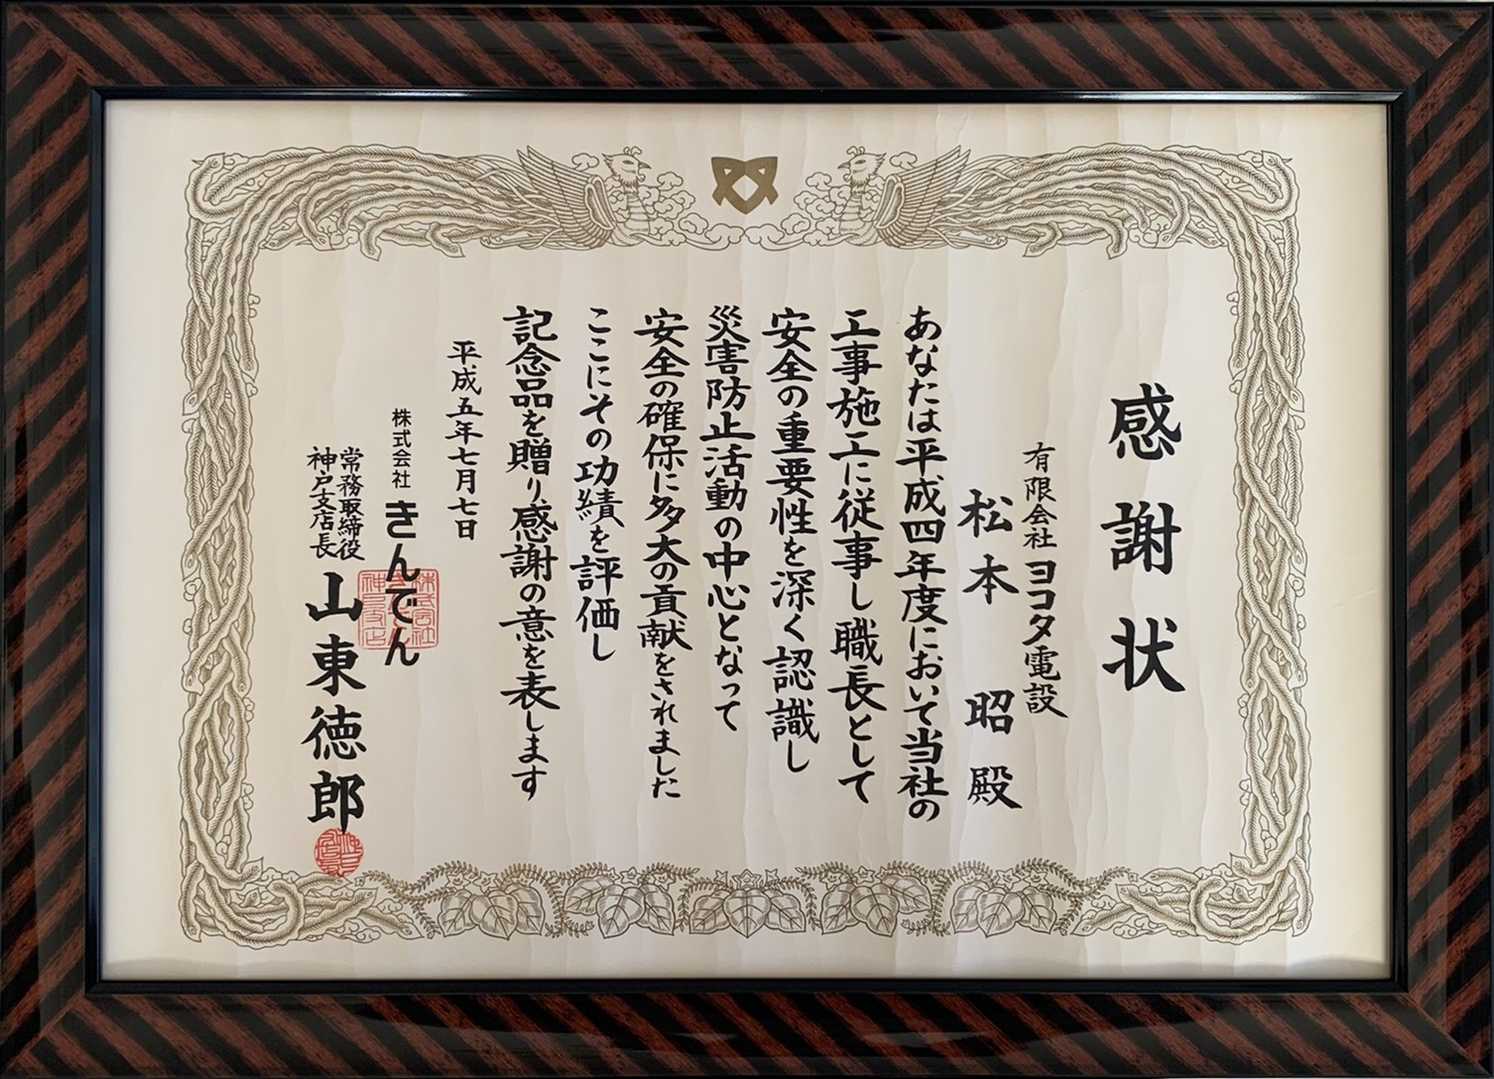 感謝状
有限会社 ヨコタ電設
松本 昭 殿
あなたは平成四年度において当社の
工事施工に従事し職長として
安全の重要性を深く認識し
災害防止活動の中心となって
安全の確保に多大の貢献をされました
ここにその功績を評価し
記念品を贈り感謝の意を表します
平成五年七月七日
株式会社 きんでん
常務取締役
神戸支店長
山東徳郎